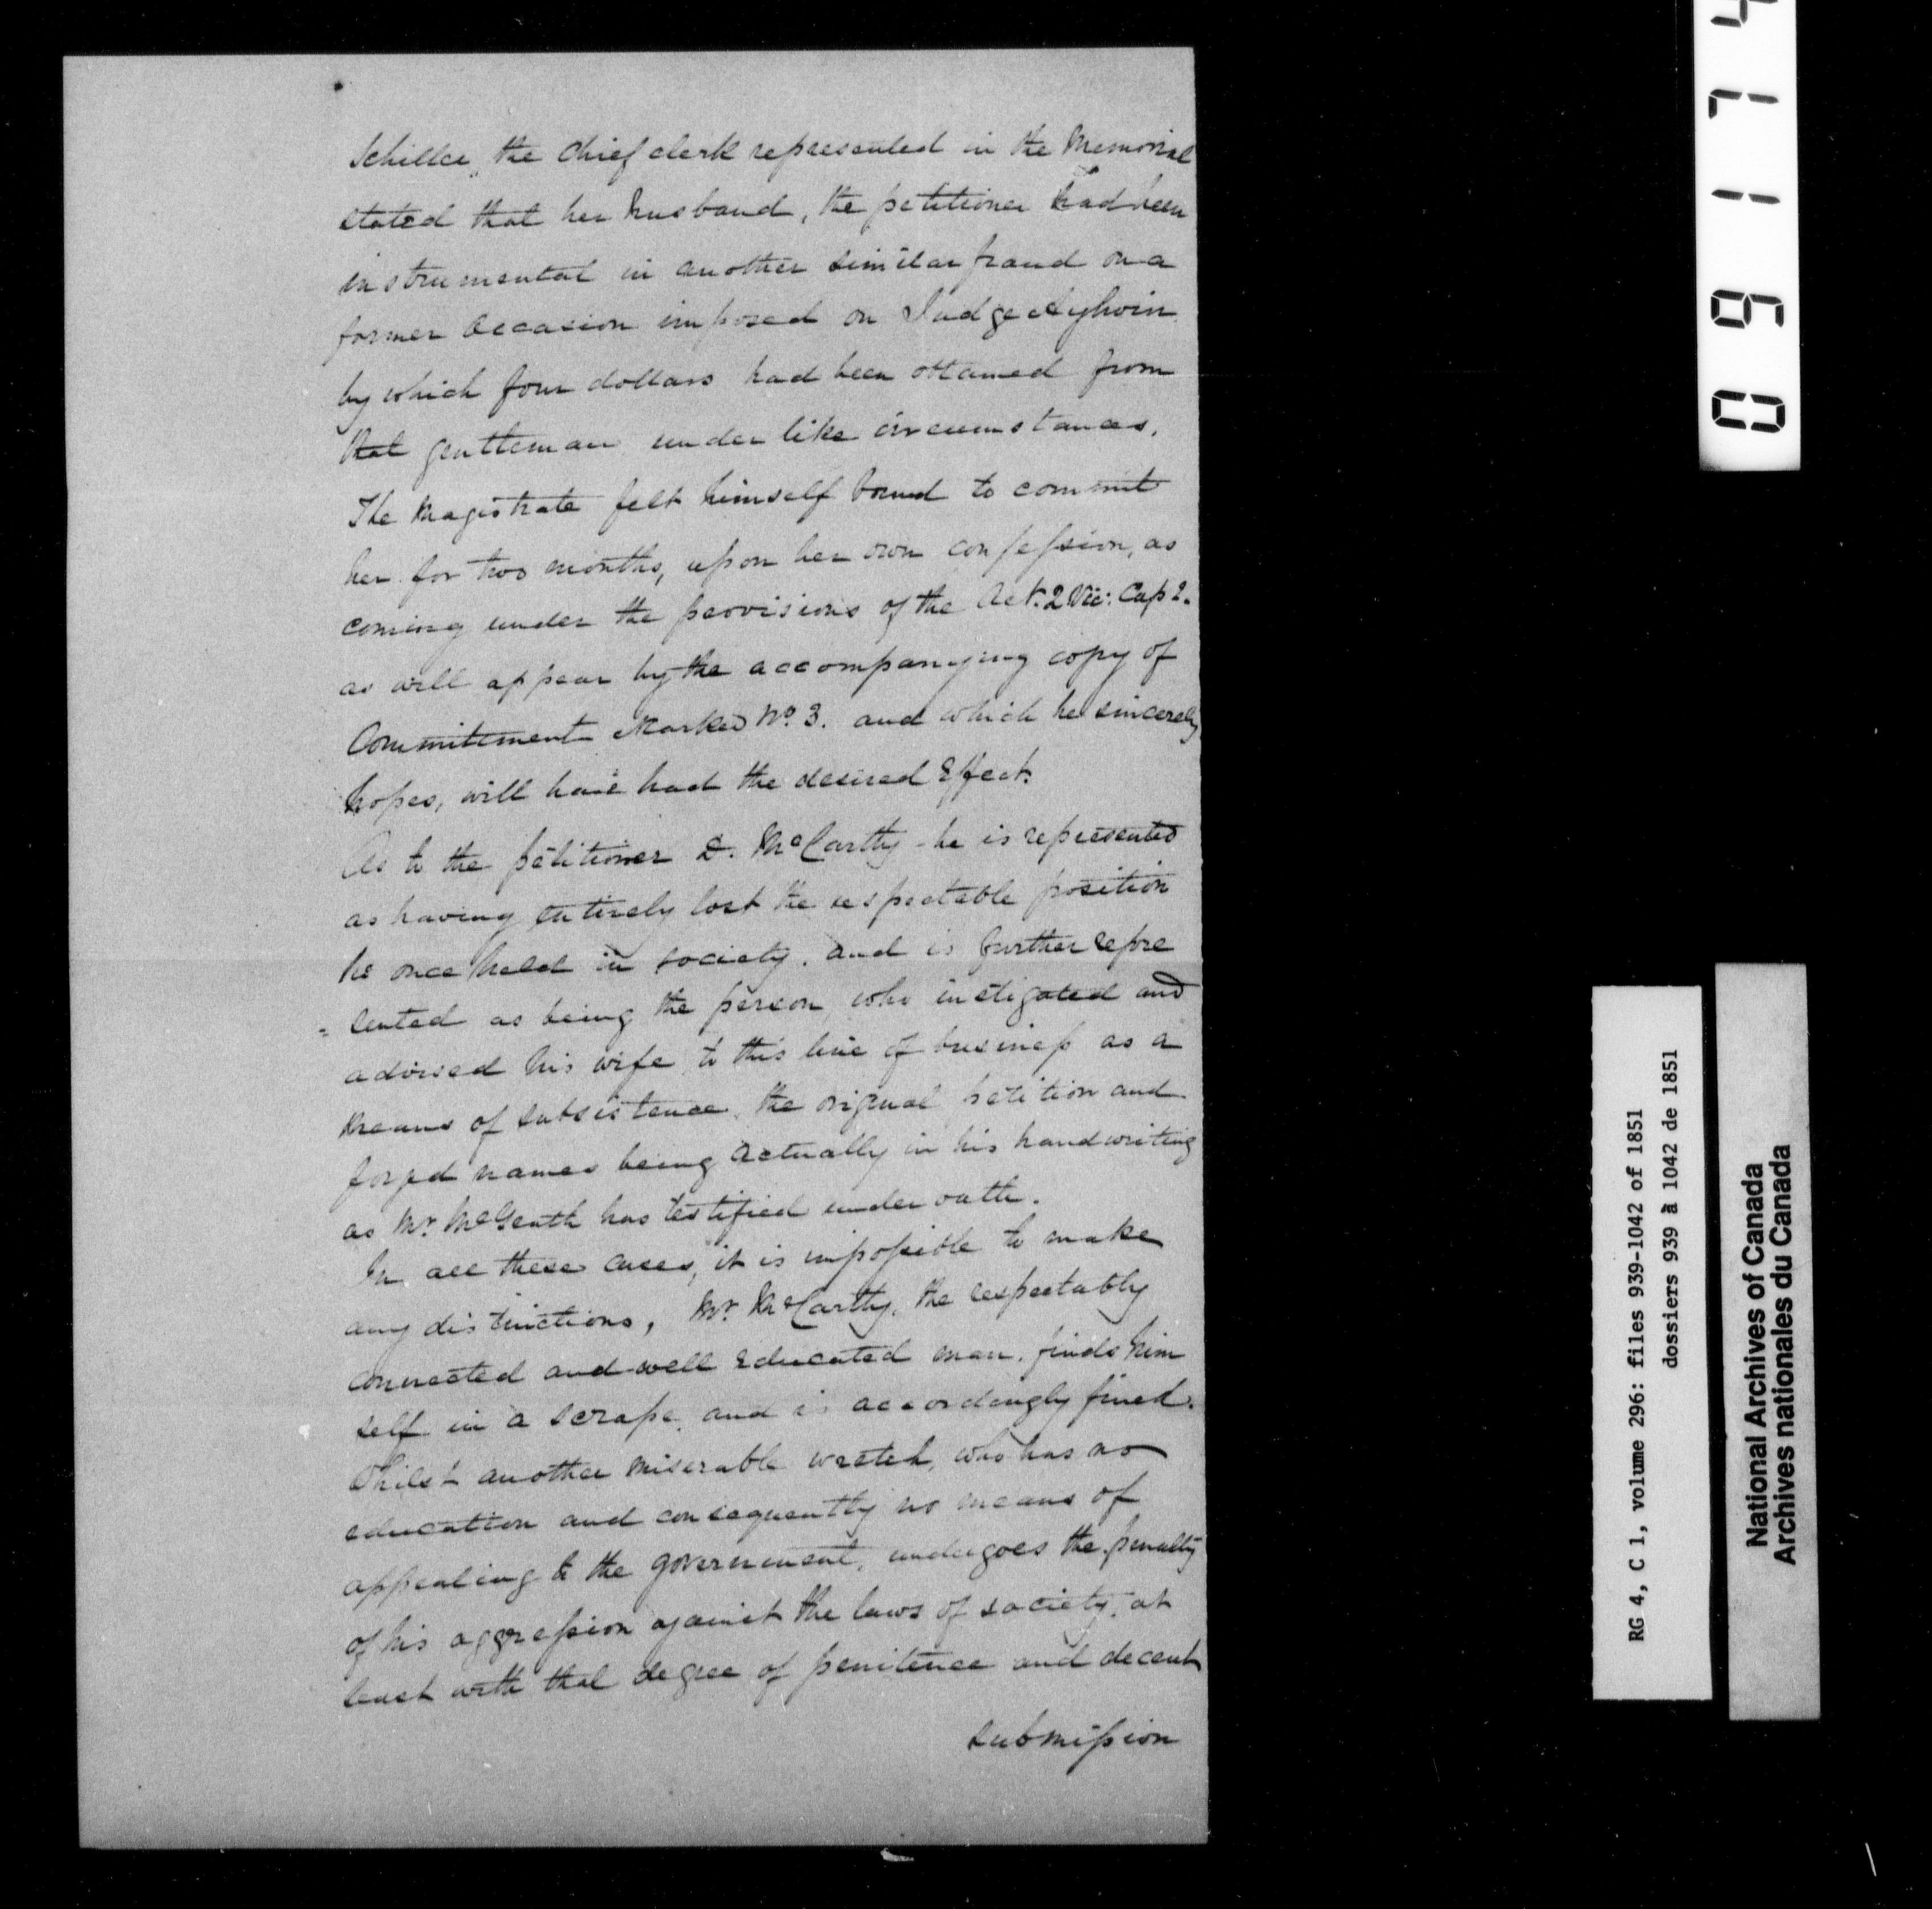 Schiller, the Chief clerk represented in the Memorial
stated that her husband, the petitioner had been
instrumental in another similar fraud on a
former occasion imposed on Judge Aylwin
by which four dollars had been obtained from
that gentleman under like circumstances.
The Magistrate felt himself bound to commit
her for two months, upon her own confession, as
coming under the provisions of the Act. 2 Vic: Cap 2.
as will appear by the accompanying copy of
Commitment Marked No. 3. and which he sincerely
hopes, will have had the desired Effect.
As to the petitioner D. McCarthy - he is represented
as having entirely lost the respectable position
he once held in society. and is further repre
= sented as being the person who instigated and
advised his wife to this line of business as a
means of subsistence, the original petition and
forged names being actually in his handwriting
as Mr. McGrath has testified under oath.
In all these cases, it is impossible to make
any distinctions, Mr. McCarthy, the respectably
connected and well educated man, finds him
self in a scrape, and is accordingly fined.
Whilst another miserable wretch, who has no
education and consequently no means of
appealing to the government, undergoes the penalty
of his aggression against the laws of society, at
least with that degree of penitence and decent
submission
09174
RG 4, C 1, volume 296: files 939-1042 of 1851
dossiers 939 à 1042 de 1851
National Archives of Canada
Archives nationales du Canada